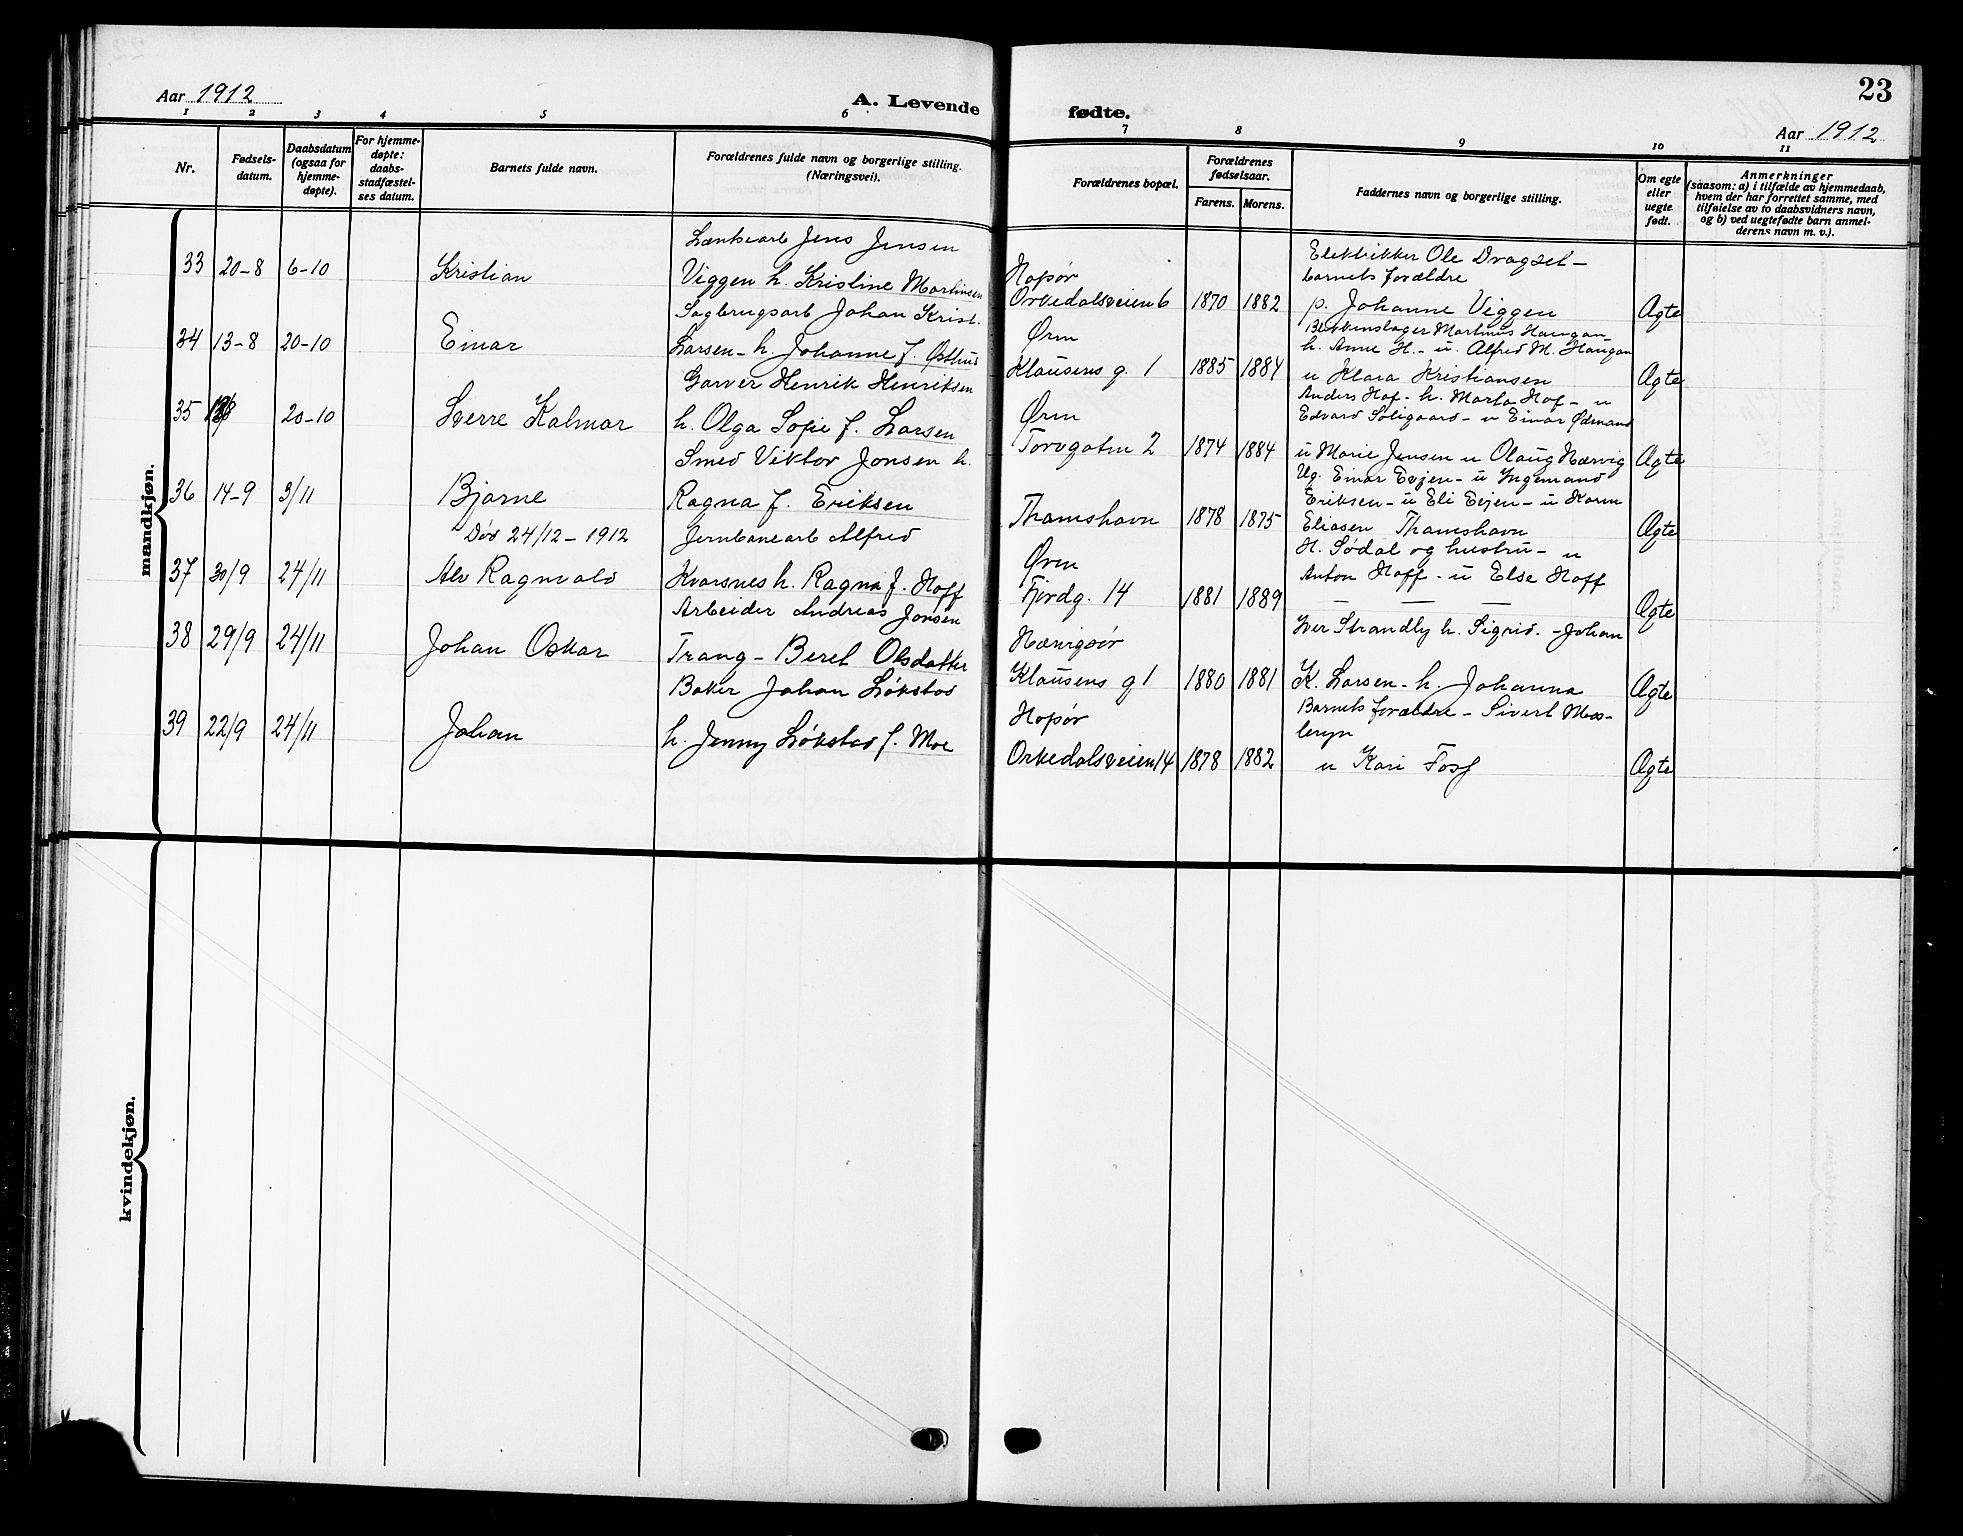 Aar 1912
A. Levende
1 2 3 4 5 6
Nr.
Fødsels-
datum.
Daabsdatum
(ogsaa for
hjemme-
døpte).
For hjemme-
døpte:
daabs-
stadfæstel-
ses datum.
Barnets fulde navn.
Forældrenes fulde navn og borgerlige stilling.
(Næringsvei).
fødte.
23
Aar 1912
7 8 9 10 11
Forældrenes bopæl.
Forældrenes
fødselsaar.
Farens. Morens.
Faddernes navn og borgerlige stilling.
Om egte
eller
uegte
født.
Anmerkninger
(saasom: a) i tilfælde av hjemmedaab,
hvem der har forrettet samme, med
tilføielse av to daabsvidners navn,
og b) ved uegtefødte barn anmel-
derens navn m. v.).
mandkjøn.
33 20-8 6-10 Kristian
Lænkearb Jens Jensen
Viggen h. Kristine Martinsen
Hopsør
Orkedalsveien 6 1870 1882
Elektrikker Ole Dragset -
barnets forældre
p. Johanne Viggen
Ægte
34 13-8 20-10 Einar
Sagbrugsarb Johan Krist.
Larsen - h. Johanne f. Østhus
Øren
Klausens g. 1 1885 1884
Blikkenslager Martinus Haugan
h. Anne H. - u. Alfred M. Haugan
u Klara Kristiansen
Ægte
35 20-10 Sverre Kalmar
Garver Henrik Henriksen
h. Olga Sofie f. Larsen
Øren
Torvgaten 2 1874 1884
Anders Hof - h. Marta Hof - u
Edvard Soligaard - u Einar Ødmand
u Marie Jensen u Olaug Nærvig
Ægte
36 14-9 3/11 Bjarne
Død 24/12 - 1912
Smed Viktor Jonsen h.
Ragna f. Eriksen
Thamshavn 1878 1875
Ug. Einar Evjen - u Ingemand
Eriksen - u Eli Evjen - u Karen
Eliasen Thamshavn
Ægte
37 30/9 24/11 Alv Ragnvald
Jernbanearb Alfred
Kvarsnes h. Ragna f. Hoff
Øren
Fjordg. 14 1881 1889
H. Sødal og hustru - u
Anton Hoff - u Else Hoff
Ægte
38 29/9 24/11 Johan Oskar
Arbeider Andreas Jonsen
Trang - Beret Olsdatter
Nærvigsør
Klausens g 1 1880 1881
Iver Strandly h. Sigrid. - Johan
K. Larsen - h. Johanna
Ægte
39 22/9 24/11 Johan
Baker Johan Løkstad
h. Jenny Løkstad f. Moe
Hopsør
Orkedalsveien 14 1878 1882
Barnets forældre - Sivert Mos-
leryn
u Kari Foss
Ægte
kvindekjøn.